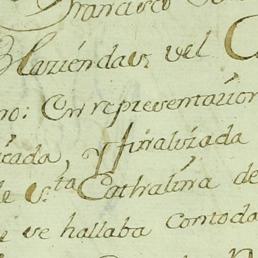 Francisco
Haziendas, del C
no: En representazion
icada, y finalizada
de S.ta Cathalina de
e se hallaba con toda